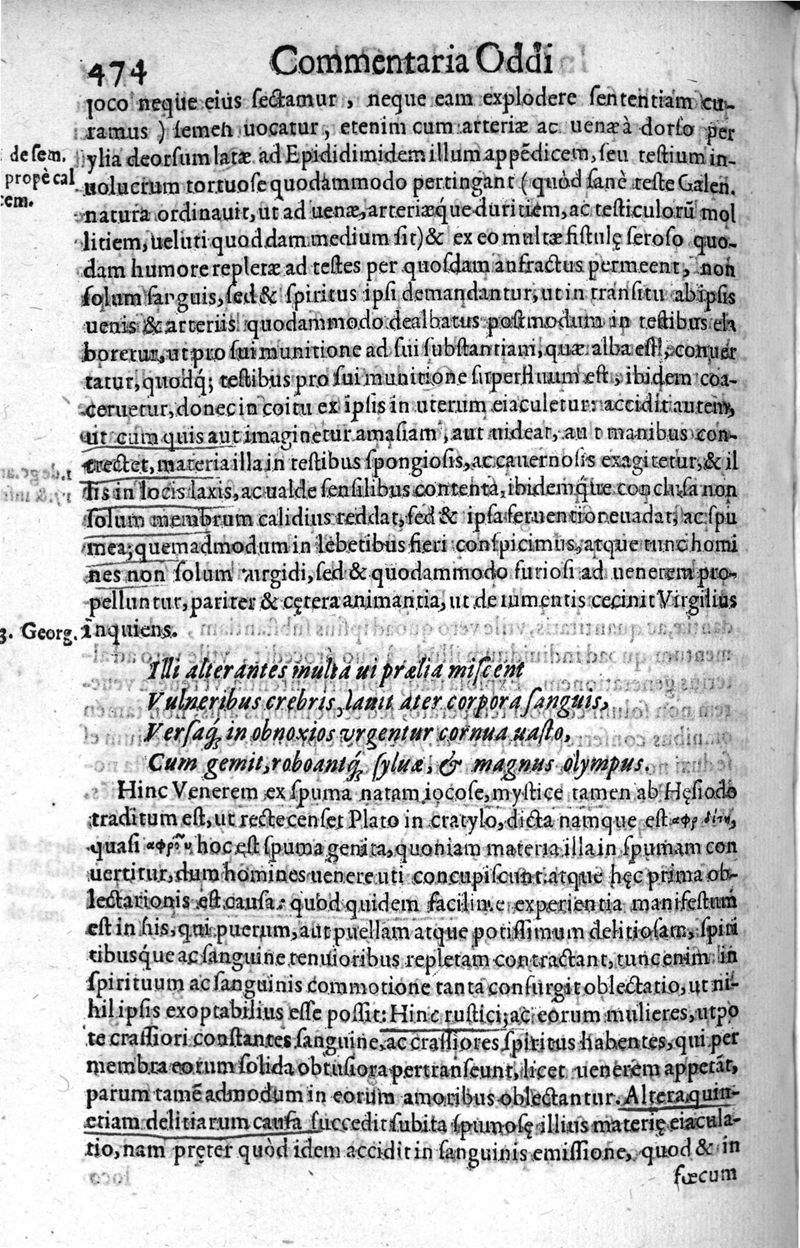 474 Commentaria Oddi
loco neque eius sectamur, neque eam explodere sententiam cu-
ramus) semen uocatur, etenim cum arteriæ ac uenæ à dorso per
de sem.
ylia deorsum latæ ad Epididimidem illum appēdicem, seu testium in-
propè cal
uolucrum tortuose quodammodo pertingant (quòd sanè teste Galen.
cem.
natura ordinauit, ut ad uenæ, arteriæq́ue duritiem, ac testiculorū mol
litiem, ueluti quoddam medium sit) & ex eo multæ fistulę seroso quo-
dam humore repletæ ad testes per quosdam anfractus permeent, non
solum sanguis, sed & spiritus ipsi demandantur, ut in transitu ab ipsis
uenis & arteriis quodammodo dealbatus postmodum in testibus ela
boretur, ut pro sui munitione ad sui substantiam, quæ alba est, conuer
tatur, quodq́; testibus pro sui munitione superfluum est, ibidem coa-
ceruetur, donec in coitu ex ipsis in uterum eiaculetur: accidit autem,
ut cum quis aut imaginetur amasiam, aut uideat, aut manibus con-
trectet, materia illa in testibus spongiosis, ac cauernosis exagitetur, & il
lis in locis laxis, ac ualde sensilibus contenta, ibidemq́ue conclusa non
solum membrum calidius reddat, sed & ipsa feruentior euadat, ac spu
mea; quemadmodum in lebetibus fieri conspicimus, atque tunc homi
nes non solum urgidi, sed & quodammodo furiosi ad uenerem pro-
pelluntur, pariter & cętera animantia, ut de iumentis cecinit Virgilius
3. Georg. inquiens.
Illi alterantes multa ui prælia miscent
Vulneribus crebris, lauit ater corpora sanguis,
Versaq́, in obnoxios urgentur cornua uasto,
Cum gemit, roboantq́, syluæ, & magnus olympus.
Hinc Venerem ex spuma natam iocose, mystice tamen ab Hęsiodo
traditum est, ut recte censet Plato in cratylo, dicta namque est
quasi hoc est spuma genita, quoniam materia illa in spumam con
uertitur, dum homines uenere uti concupiscunt: atque hęc prima ob-
lectationis est causa: quod quidem facilime experientia manifestum
est in his, qui puerum, aut puellam atque potissimum delitiosam, spiri
tibusque ac sanguine tenuioribus repletam contractant, tunc enim in
spirituum ac sanguinis commotione tanta consurgit oblectatio, ut ni-
hil ipsis exoptabilius esse possit: Hinc rustici, ac eorum mulieres, utpo
te crassiori constantes sanguine, ac crassiores spiritus habentes, qui per
membra eorum solida obtusiora pertranseunt, licet uenerem appetāt,
parum tamē admodum in eorum amoribus oblectantur. Altera quin-
etiam delitiarum causa succedit subita spumosę illius materię eiacula-
tio, nam pręter quòd idem accidit in sanguinis emissione, quod & in
fœcum